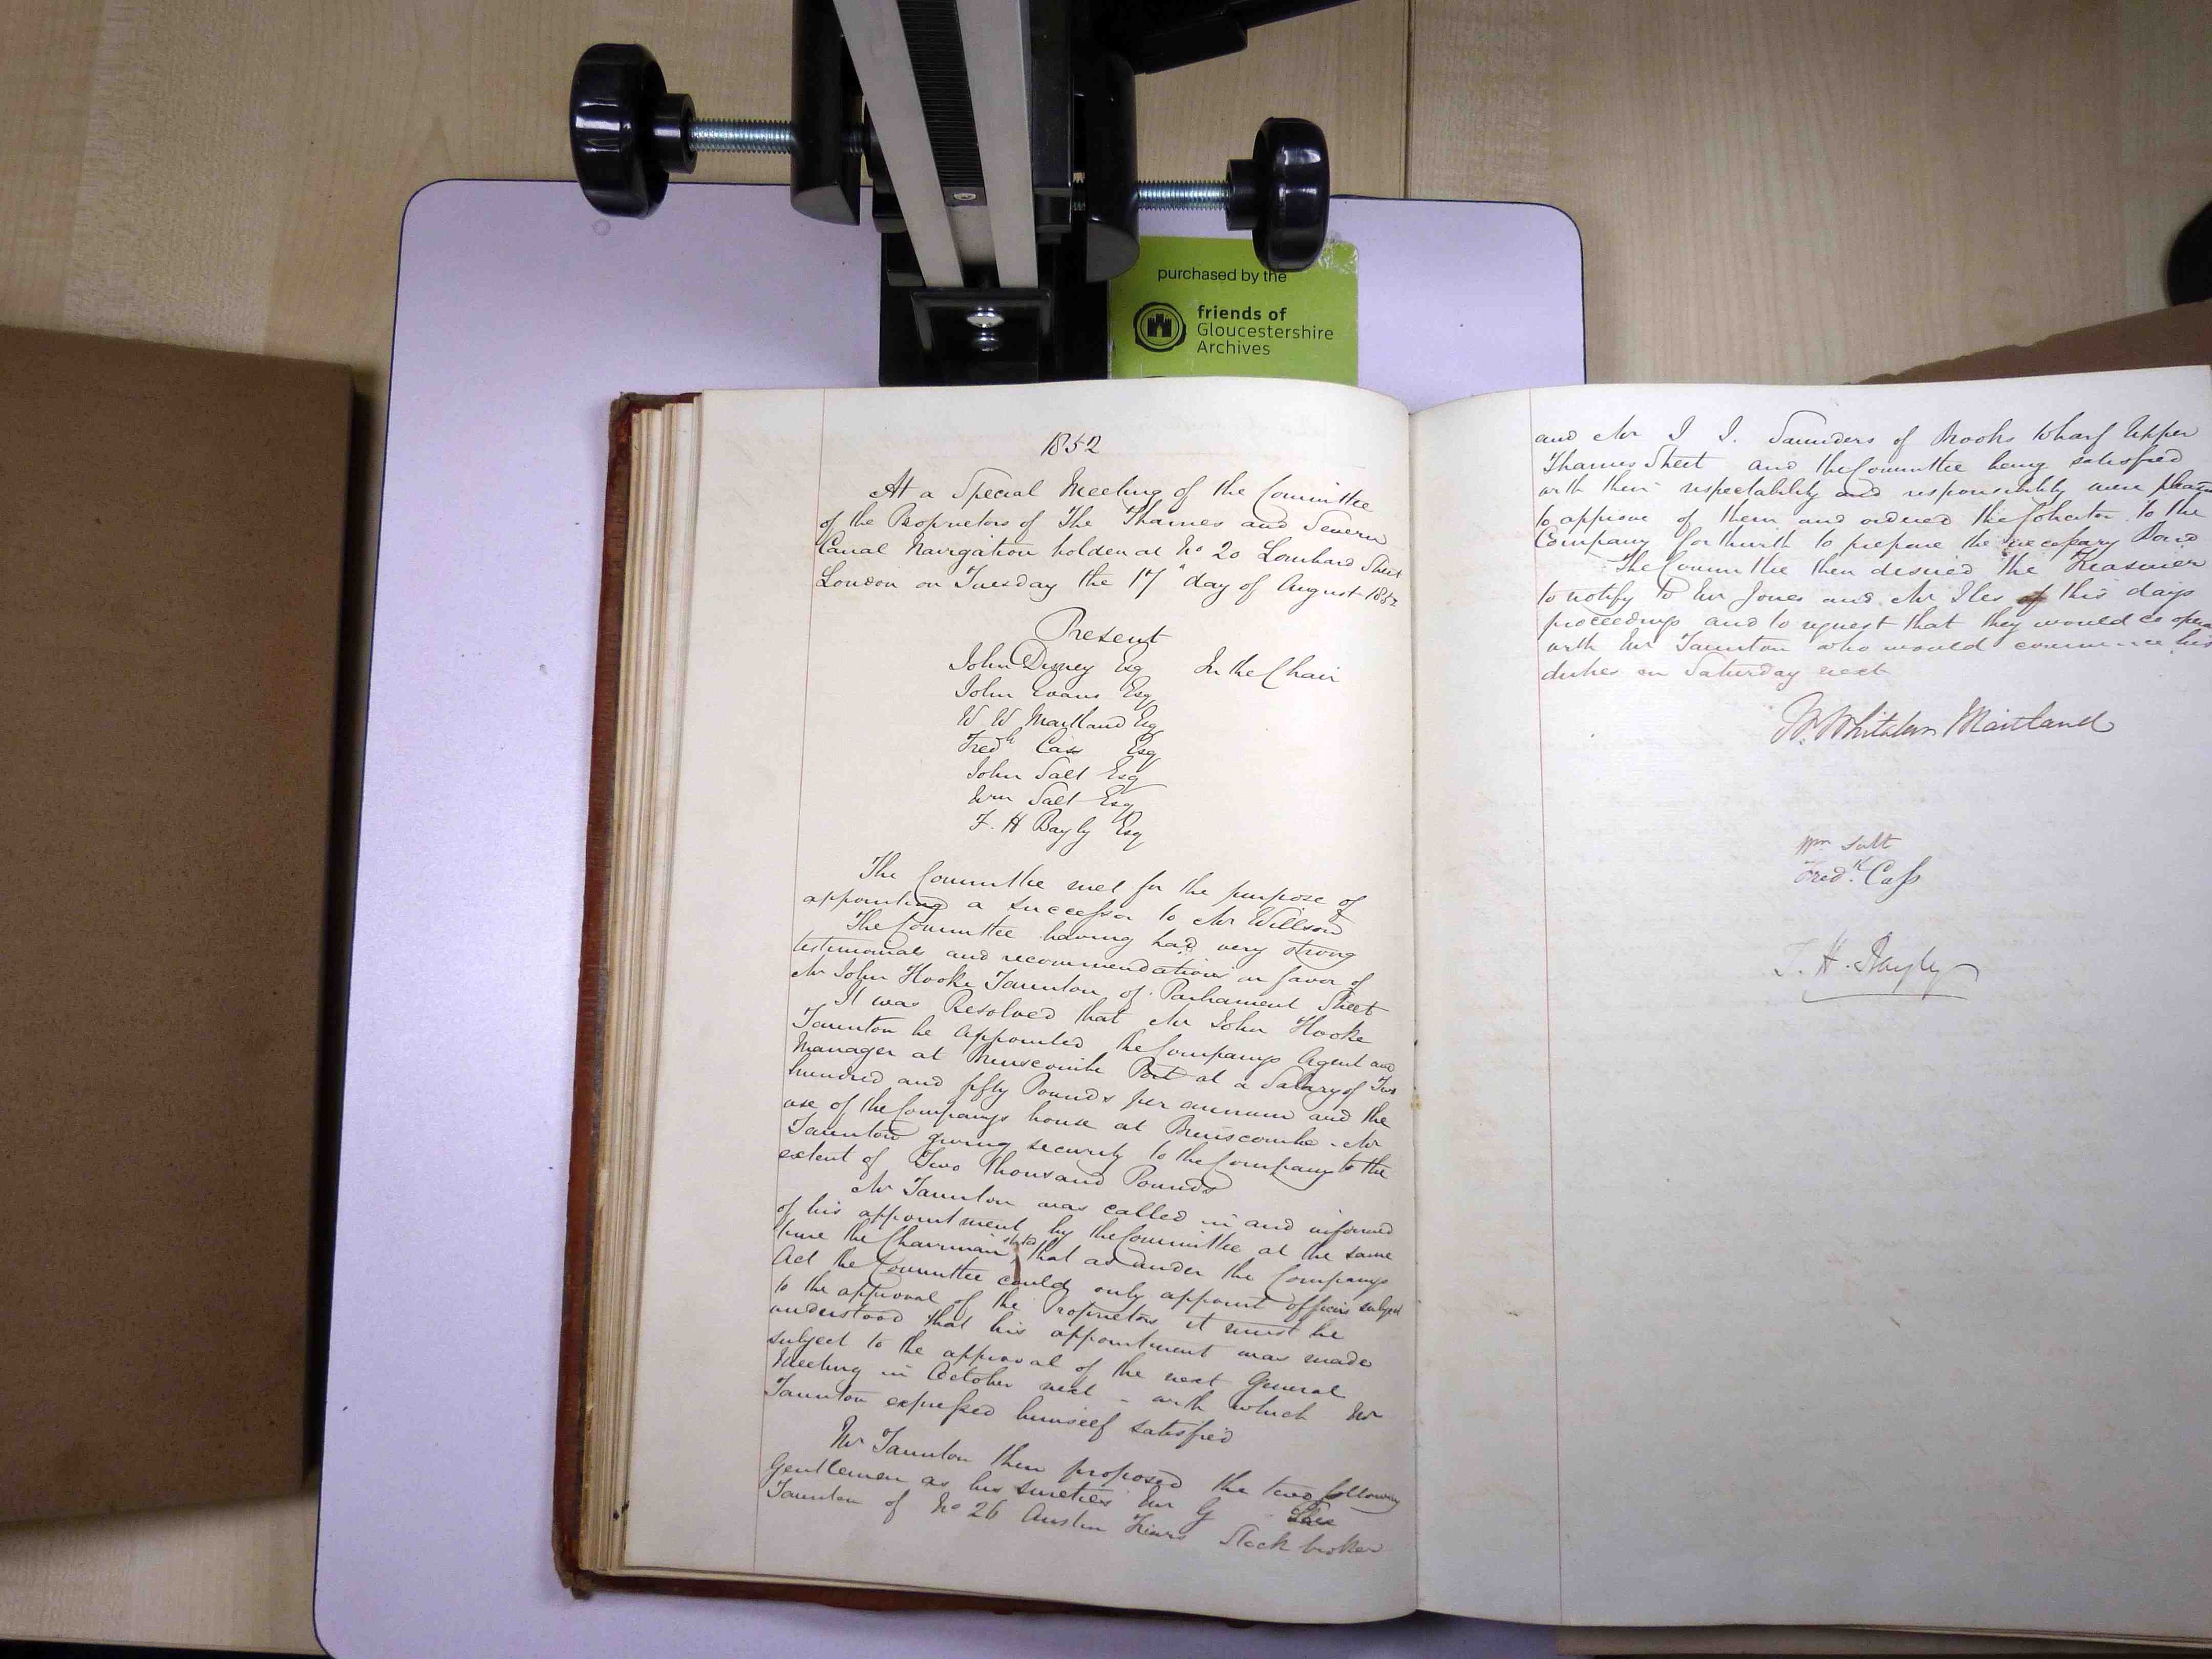 purchased by the
friends of
Gloucestershire
Archives
1852
At a Special Meeting of the Committee
of the Proprietors of The Thames and Severn
Canal Navigation holden at No 20 Lombard Street
London on Tuesday the 17th day of August 1852
Present
John Disney Esq In the Chair
John Evans Esq
W W Maitland Esq
Fredk Cass Esq
John Salt Esq
Wm Salt Esq
F. H Bayly Esq
The Committee met for the purpose of
appointing a successor to Mr Willson
The Committee having had very strong
testimonial and recommendations in favor of
Mr John Hooke Taunton of Parliament Street
It was Resolved that Mr John Hooke
Taunton be appointed the Companys Agent and
Manager at Brimscombe Port at a Salary of Two
hundred and fifty Pounds per annum and the
use of the Companys house at Brimscombe - Mr
Taunton giving security to the Company to the
extent of Two Thousand Pounds
Mr Taunton was called in and informed
of his appointment by the Committee at the same
time the Chairman stated that as under the Companys
Act the Committee could only appoint officers subject
to the approval of the Proprietors it must be
understood that his appointment was made
subject to the approval of the next General
Meeting in October next - with which Mr
Taunton expressed himself satisfied
Mr Taunton then proposed the two following
Gentlemen as his sureties Mr G
Taunton of No 26 Austin Friars Stock broker
and Mr J J. Saunders of Brooks Wharf Upper
Thames Street and the Committee being satisfied
with their respectability and responsibility were
to approve of them and ordered the Solicitor to the
Company forthwith to prepare the necessary Bond
The Committee then desired the Treasurer
to notify to Mr Jones and Mr Iles of this days
proceedings and to request that they would co opera
with Mr Taunton who would commence his
duties on Saturday next
W. Whitaker Maitland
Wm Salt
Fredk. Cass
F. H. Bayly